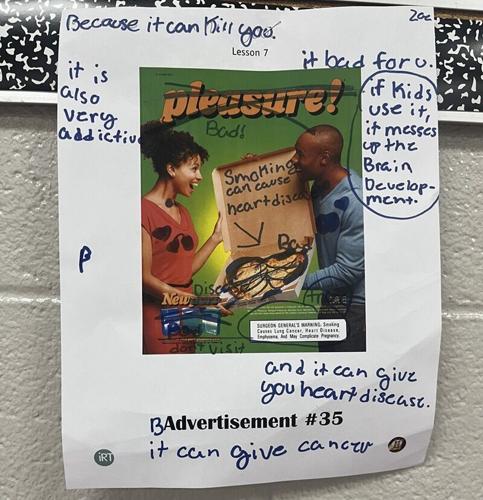 Because it can kill you.
Zoe
Lesson 7
it bad for u.
it is
also
very
addictive
if Kids
use it,
it messes
up the
Brain
Develop-
ment.
pleasure!
Bad!
Smoking
can cause
heart disease
Bad
B
New
Bad
don't visit
SURGEON GENERAL'S WARNING: Smoking
Causes Lung Cancer, Heart Disease,
Emphysema, And May Complicate Pregnancy.
and it can give
you heart disease.
B
Advertisement #35
it can give cancer
iRT